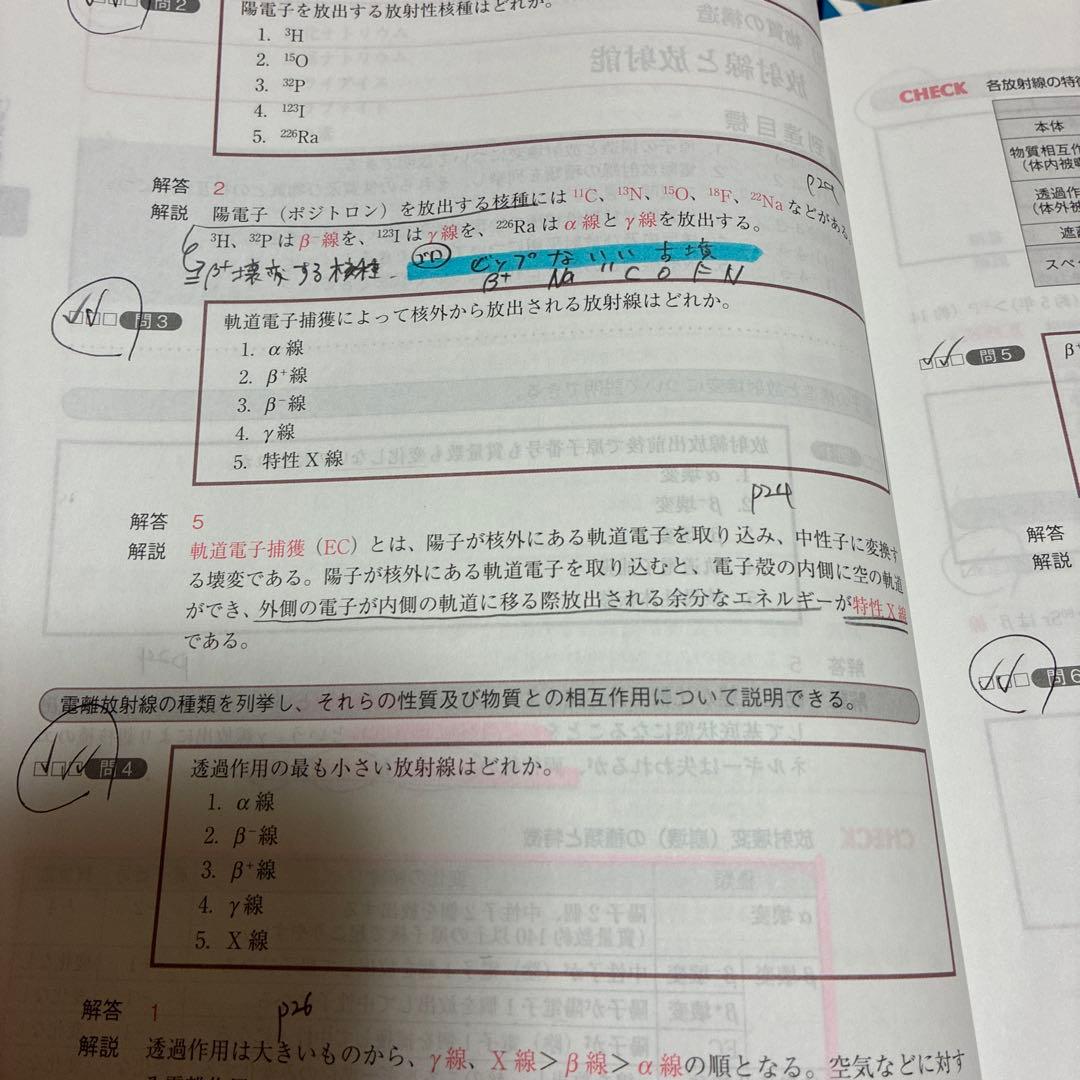 問2
陽電子を放出する放射性核種はどれか。
1. ³H
2. ¹⁵O
3. ³²P
4. ¹²³I
5. ²²⁶Ra
解答 2
p24
解説 陽電子（ポジトロン）を放出する核種には ¹¹C、¹³N、¹⁵O、¹⁸F、²²Na などがある
³H、³²P は β⁻線を、¹²³I は γ線を、²²⁶Ra は α線と γ線を放出する。
β⁺壊変する核種
ゴロ
β⁺ Na " C O F N
問3
軌道電子捕獲によって核外から放出される放射線はどれか。
1. α線
2. β⁺線
3. β⁻線
4. γ線
5. 特性X線
p24
解答 5
解説 軌道電子捕獲（EC）とは、陽子が核外にある軌道電子を取り込み、中性子に変換す
る壊変である。陽子が核外にある軌道電子を取り込むと、電子殻の内側に空の軌道
ができ、外側の電子が内側の軌道に移る際放出される余分なエネルギーが特性X線
である。
電離放射線の種類を列挙し、それらの性質及び物質との相互作用について説明できる。
問4
透過作用の最も小さい放射線はどれか。
1. α線
2. β⁻線
3. β⁺線
4. γ線
5. X線
解答 1
p26
解説 透過作用は大きいものから、γ線、X線＞β線＞α線の順となる。空気などに対す
CHECK 各放射線の特
本体
物質相互作
（体内被
透過作
（体外被
遮
スペ
問5
β⁺
解答
解説
問6